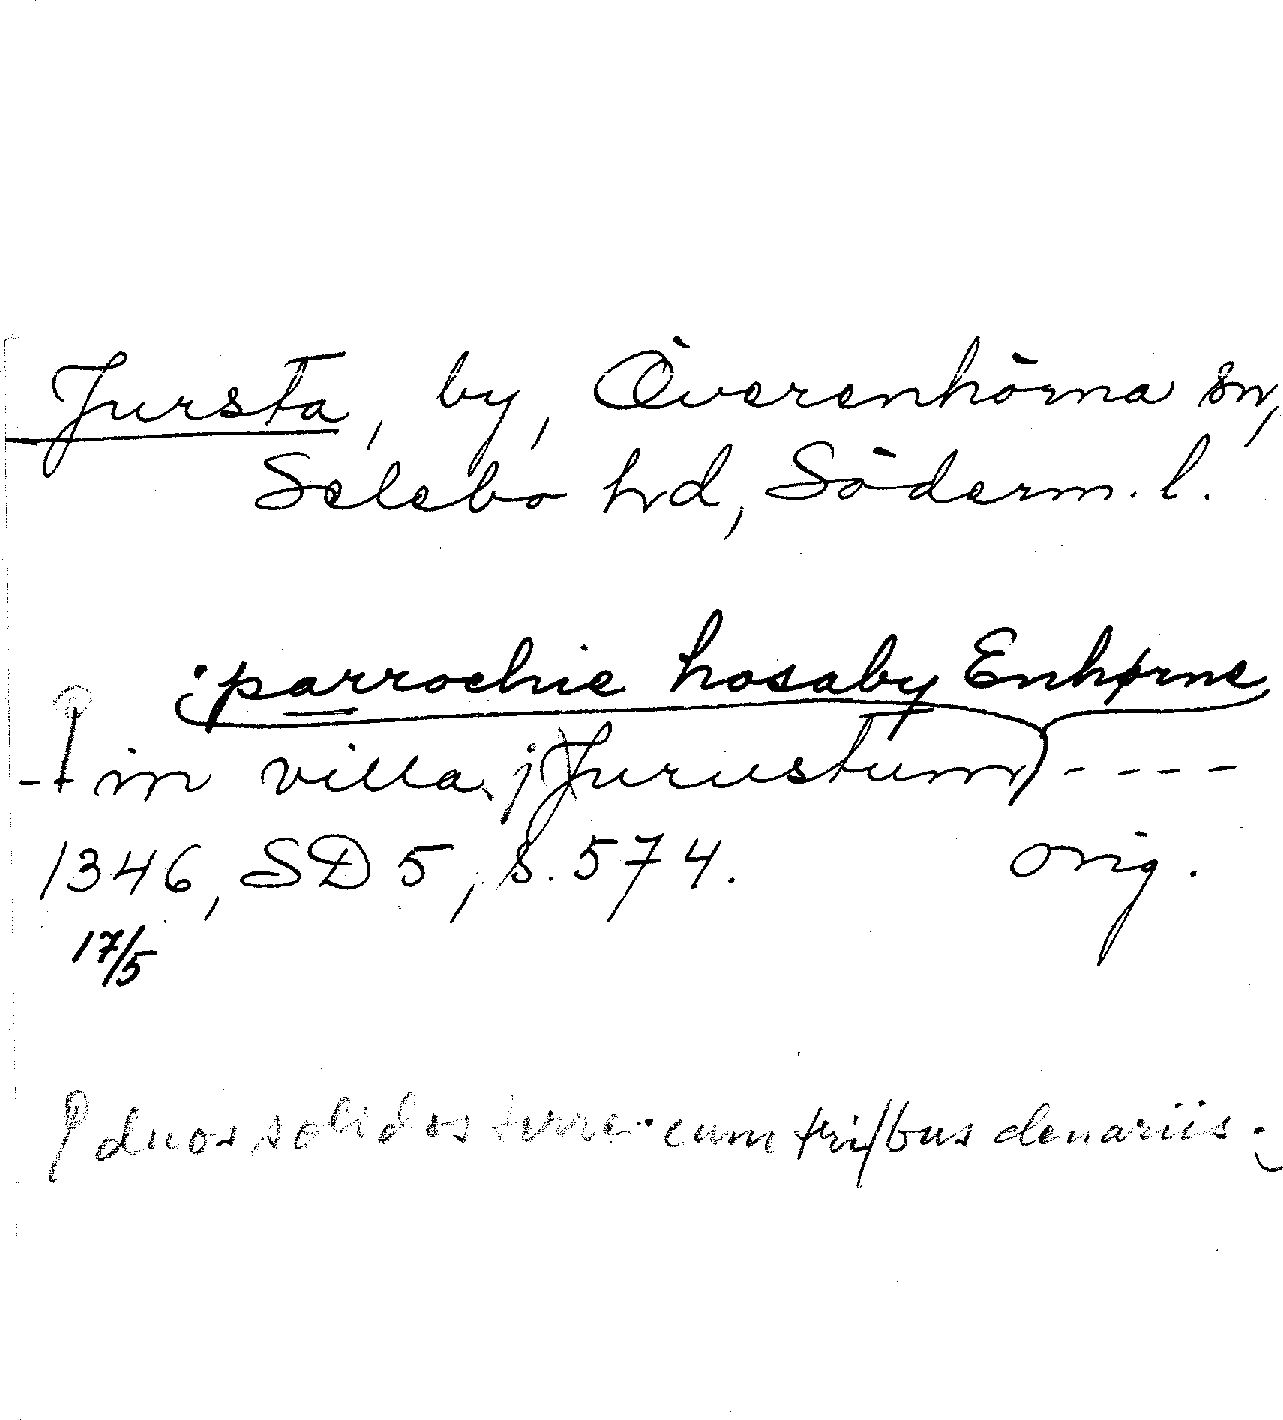 Jursta, by, Överenhörna sn,
Selebo hd, Söderm. l.
parrochie husaby Enhørne
- in villa jurustum) - - - -
1346, SD 5, s. 574. orig.
17/5
duos solidos terre cum tribus denariis.